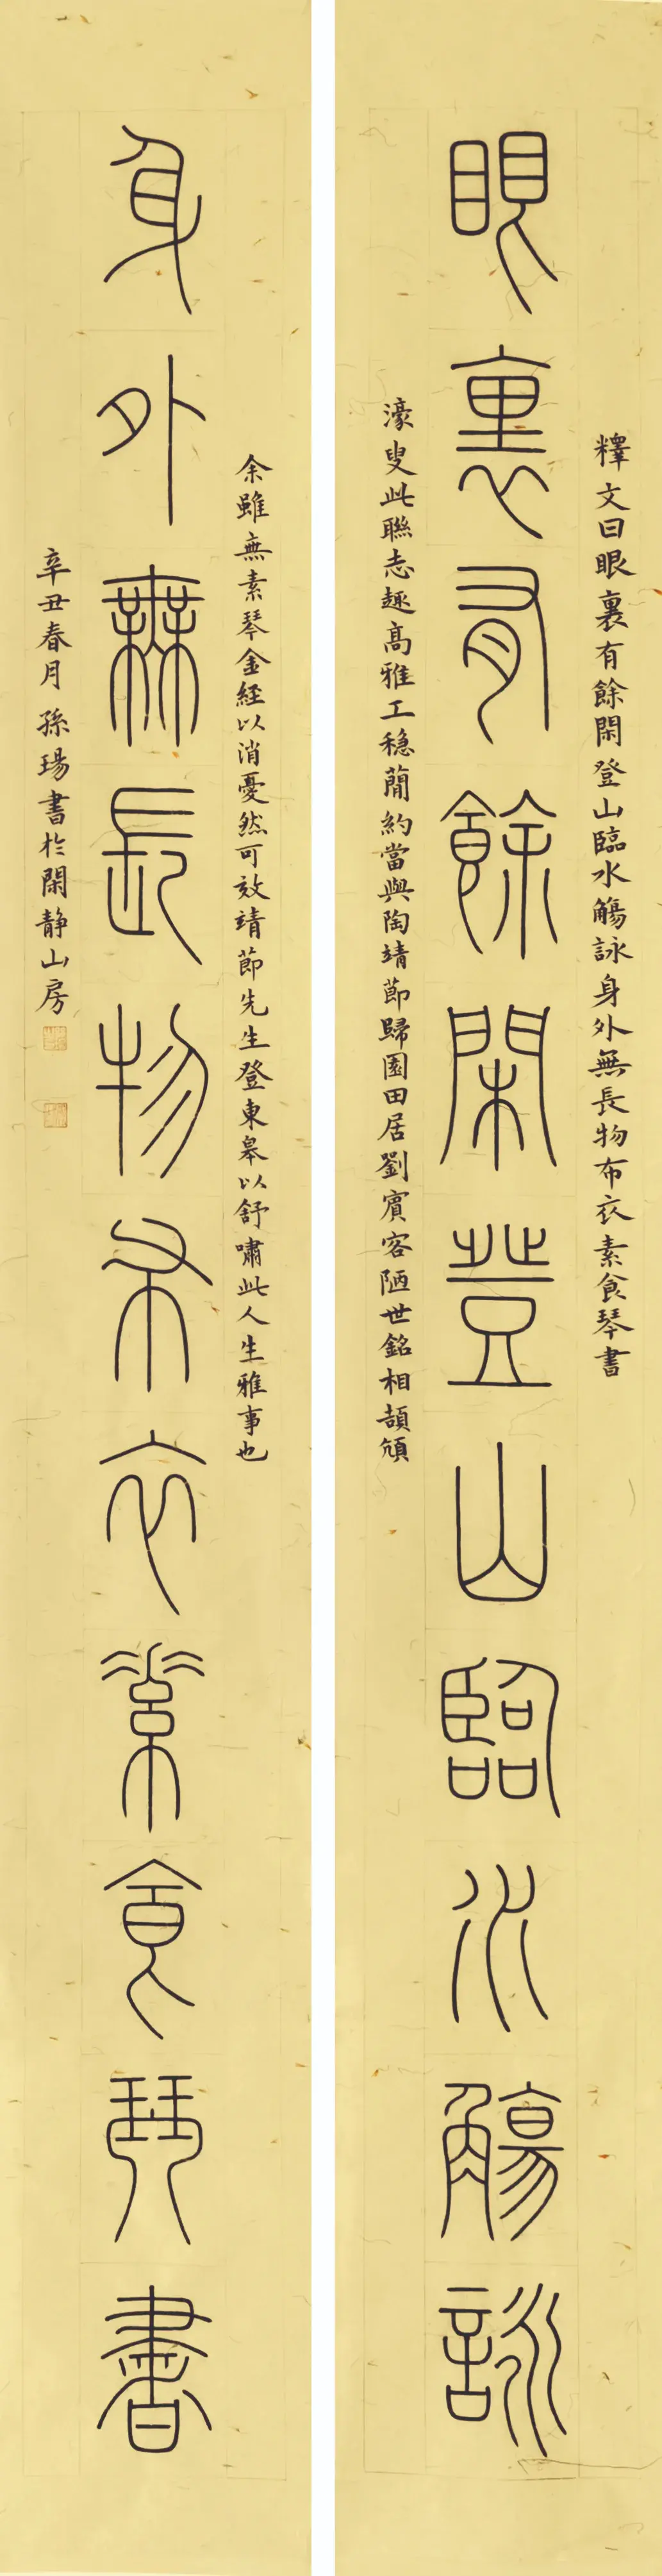 釋文曰眼裏有餘閑登山臨水觴詠身外無長物布衣素食琴書
眼裏有餘閑登山臨水觴詠
濠叟此聯志趣高雅工穩蕳約當與陶靖節歸園田居劉賓客陋世銘相頡頏
余雖無素琴金經以消憂然可效靖節先生登東皋以舒嘯此人生雅事也
身外無長物布衣素食琴書
辛丑春月孫瑒書於閑静山房